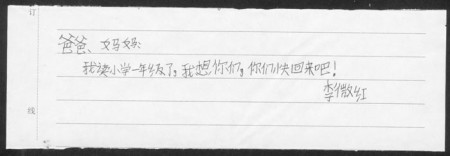 订
爸爸、妈妈:
我读小学一年级了,我想你们,你们快回来吧!
李微红
线